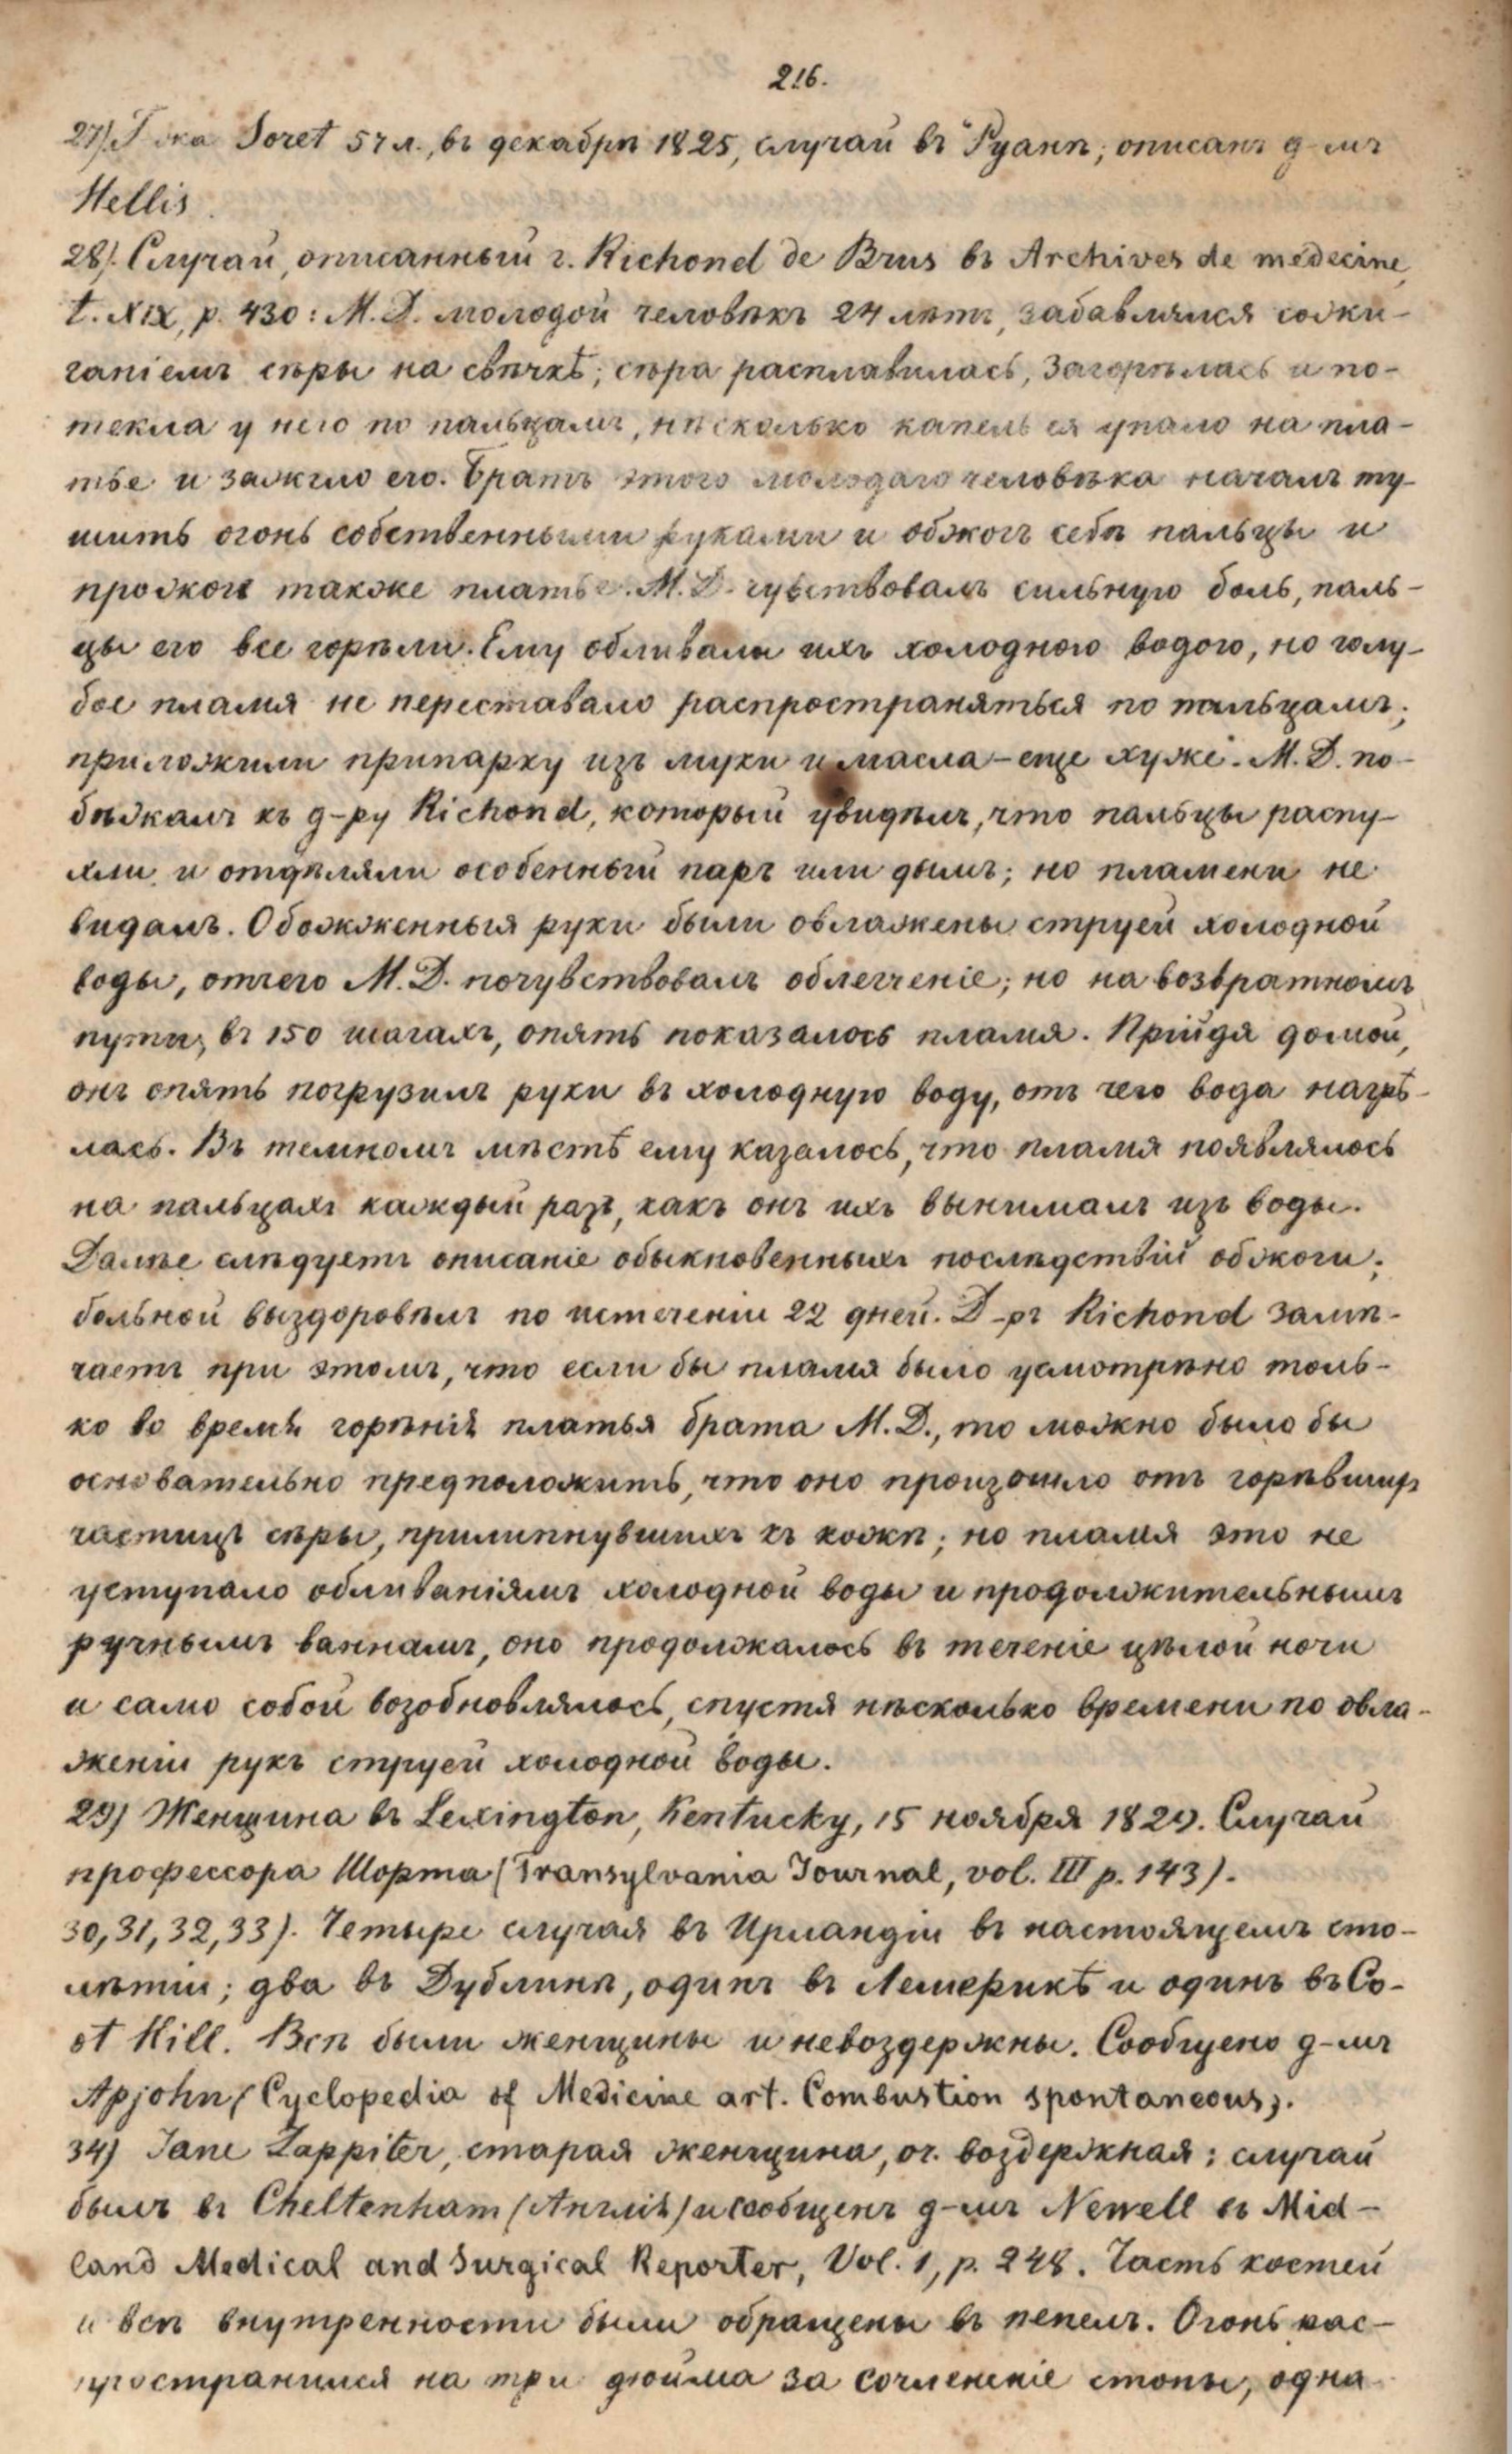 216.
27) Г-жа Soret 57 л., въ декабрѣ 1825, случай въ Руанѣ; описанъ д-мъ
Hellis.
28). Случай, описанный г. Richond de Brus въ Archives de medecine,
t. XIX, p. 430: М. D. молодой человѣкъ 24 лѣтъ, забавлялся сожи-
ганіемъ сѣры на свѣчкѣ; сѣра расплавилась, загорѣлась и по-
текла у него по пальцамъ, нѣсколько капель ея упало на пла-
тье и зажгло его. Братъ этого молодаго человѣка началъ ту-
шить огонь собственными руками и обжогъ себѣ пальцы и
прожогъ также платье. М. D. чувствовалъ сильную боль, паль-
цы его все горѣли. Ему обливали ихъ холодною водою, но голу-
бое пламя не переставало распространяться по пальцамъ;
приложили припарку изъ муки и масла – еще хуже. М. D. по-
бѣжалъ къ д-ру Richond, который увидѣлъ, что пальцы распу-
хли и отдѣляли особенный паръ или дымъ; но пламени не
видалъ. Обожженныя руки были овлажены струей холодной
воды, отчего М. D. почувствовалъ облегченіе; но на возвратномъ
пути, въ 150 шагахъ, опять показалось пламя. Прійдя домой,
онъ опять погрузилъ руки въ холодную воду, отъ чего вода нагрѣ-
лась. Въ темномъ мѣстѣ ему казалось, что пламя появлялось
на пальцахъ каждый разъ, какъ онъ ихъ вынималъ изъ воды.
Далѣе слѣдуетъ описаніе обыкновенныхъ послѣдствій обжоги;
больной выздоровѣлъ по истеченіи 22 дней. Д-ръ Richond замѣ-
чаетъ при этомъ, что если бы пламя было усмотрѣно толь-
ко во время горѣнія платья брата М. D., то можно было бы
основательно предположить, что оно произошло отъ горѣвшихъ
частицъ сѣры, прилипнувшихъ къ кожѣ; но пламя это не
уступало обливаніямъ холодной воды и продолжительнымъ
ручнымъ ваннамъ, оно продолжалось въ теченіе цѣлой ночи
и само собой возобновлялось, спустя нѣсколько времени по овла-
женіи рукъ струей холодной воды.
29) Женщина въ Lexington, Kentucky, 15 ноября 1829. Случай
профессора Шорта (Transylvania Journal, vol. III p. 143).
30, 31, 32, 33). Четыре случая въ Ирландіи въ настоящемъ сто-
лѣтіи; два въ Дублинѣ, одинъ въ Лемерикѣ и одинъ въ Co-
ot Hill. Всѣ были женщины и невоздержны. Сообщено д-мъ
Apjohn (Cyclopedia of Medicine art. Combustion spontaneous).
34) Jane Lappiter, старая женщина, оч. воздержная; случай
былъ въ Cheltenham (Англія) и сообщенъ д-мъ Newell въ Mid-
land Medical and Surgical Reporter, Vol. 1, p. 248. Часть костей
и всѣ внутренности были обращены въ пепелъ. Огонь рас-
пространился на три дюйма за сочлененіе стопы, одна